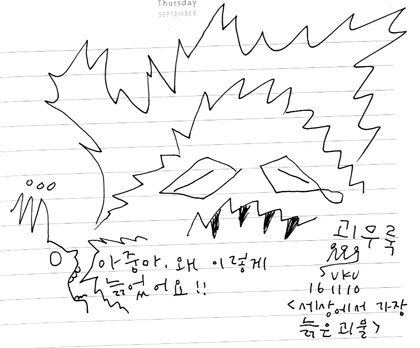 Thursday
SEPTEMBER
아줌마, 왜 이렇게
늙었어요!!
괴우죽
SUKU
161110
<세상에서 가장
늙은 괴물>